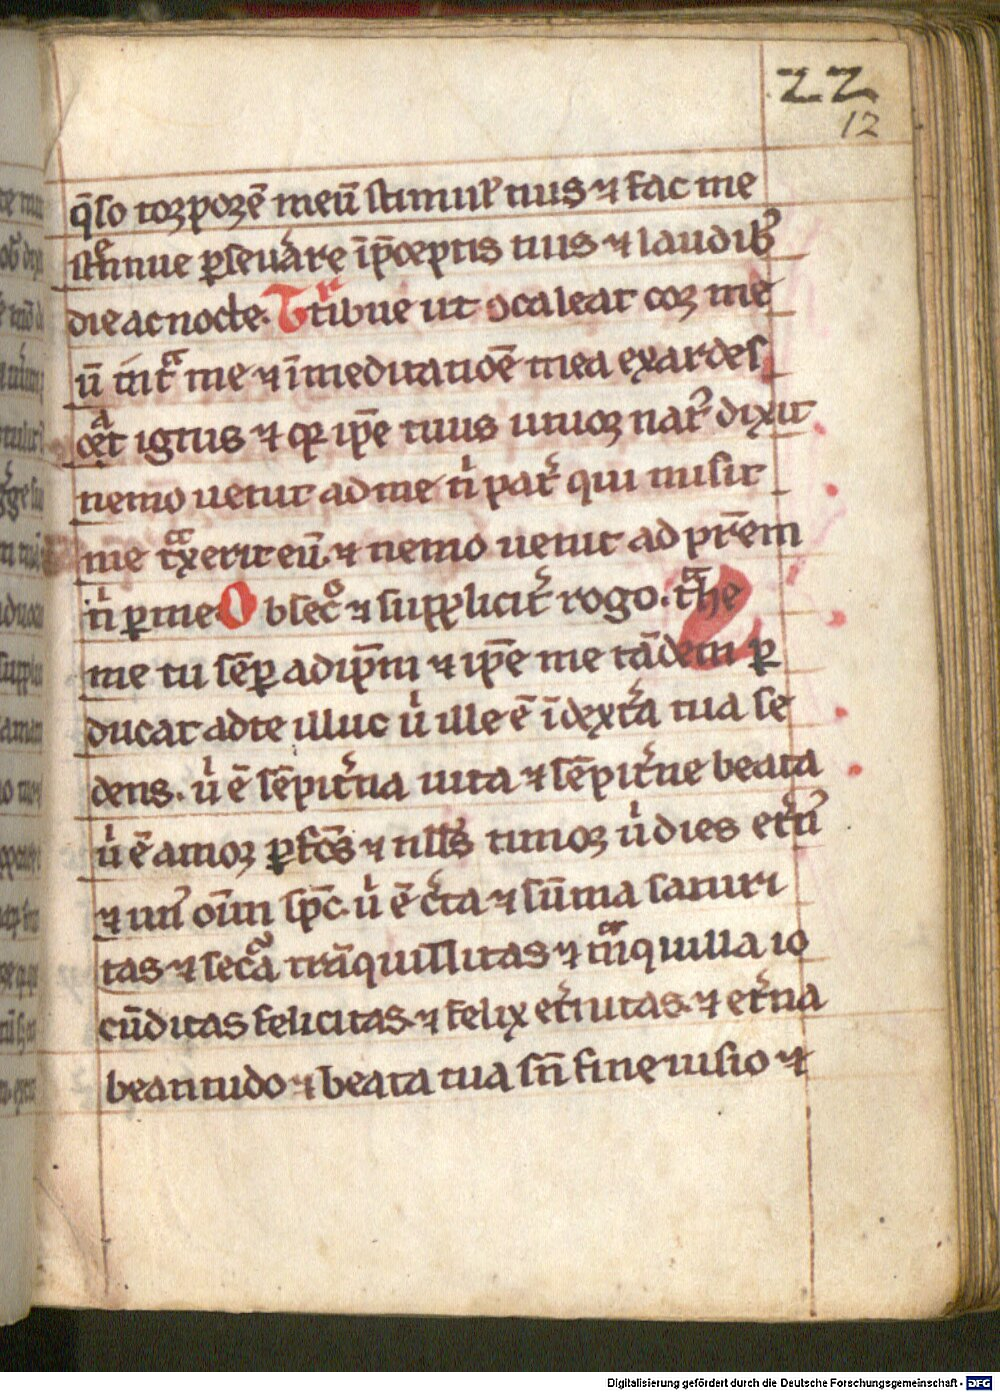 22
12
q̄so torporē meū stimul' tuis ⁊ fac me
strēnue ꝑseuare īp̄ceptis tuis ⁊ laudib'
die ac nocte. Tribue ut ɔcaleat cor me
ū int͛ me ⁊ ī meditatiōe mea exardes
cet ignis ⁊ qꝛ ip̄e tuus unicꝰ nat' dixit
nemo uenit ad me n̍ pat͛ qui misit
me tͣxerit eū. ⁊ nemo uenit ad pr̄em
n̍ ꝑ me. Obsecͦ ⁊ suppliciť rogo. tͣhe
me tu sēꝑ ad ip̄m ⁊ ip̄e me tādem ꝑ
ducat ad te illuc u̍ ille ē ī dext͛a tua se
dens. u̍ ē sēpit͛na uita ⁊ sēpit͛ne beata
u̍ ē amor ꝑfcs̄ ⁊ nllꝰ timor u̍ dies et͛n'
⁊ un' oīm sp̄c. u̍ ē c͛ta ⁊ sūma securi
tas ⁊ secͣa trāquillitas ⁊ tͣnquilla io
cūditas felicitas. ⁊ felix et͛nitas. ⁊ et͛na
beatitudo ⁊ beata tua sn̄ fine uisio ⁊
Digitalisierung gefördert durch die Deutsche Forschungsgemeinschaft - DFG